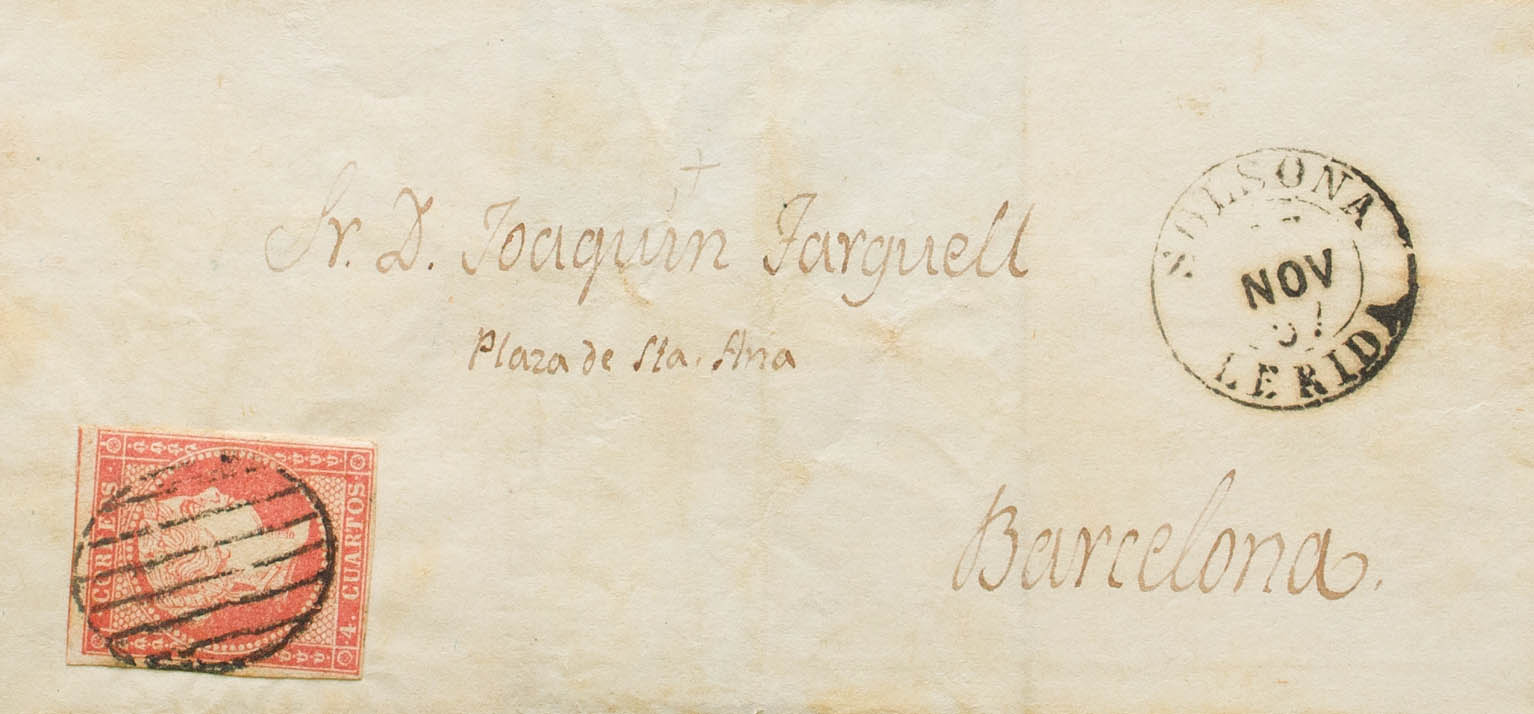 Sr. D. Joaquin Farguell
Plaza de Sta. Ana
Barcelona.
SOLSONA
NOV
LERIDA
CORREOS
4. CUARTOS